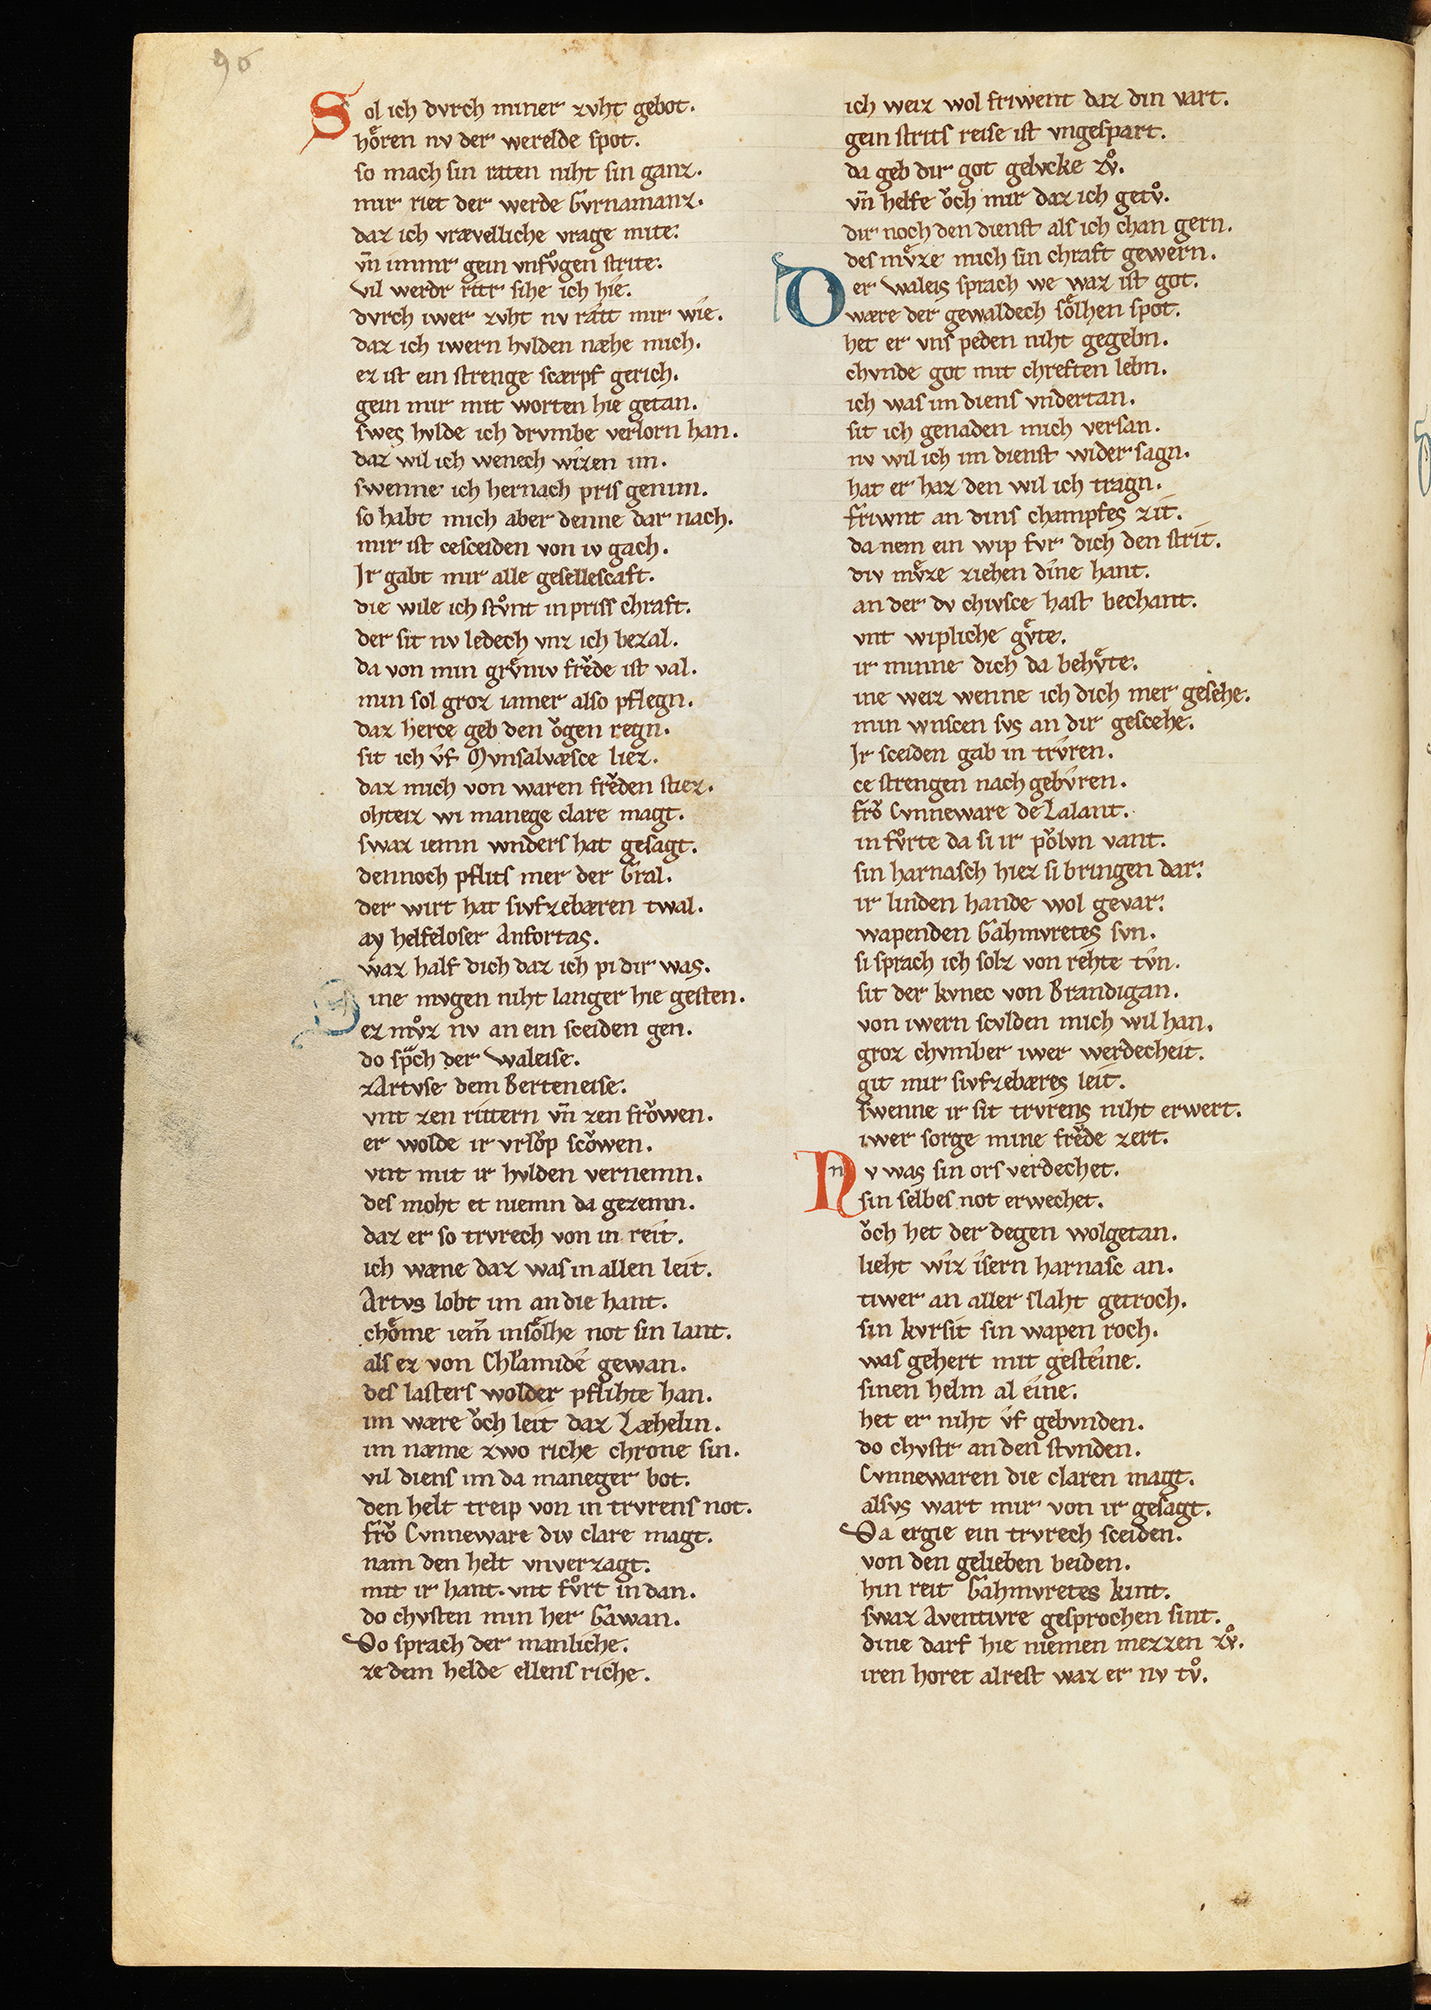 96
Sol ich dvrch miner zvht gebot.
hoͤren nv der werelde spot.
so mach sin raten niht sin ganz.
mir riet der werde Gvrnamanz.
daz ich vrævelliche vrage mite.
vn̄ immr gein vnfvͦgen strite.
vil werdr rittr sihe ich hie.
dvrch iwer zvht nv ratt mir wie.
daz ich iwern hvlden næhe mich.
ez ist ein strenge scærpf gerich.
gein mir mit worten hie getan.
swes hvlde ich drvmbe verlorn han.
daz wil ich wenech wizen im.
swenne ich hernach pris genim.
so habt mich aber denne dar nach.
mir ist cesceiden von iv gach.
Ir gabt mir alle gesellescaft.
die wile ich stvͦnt in priss chraft.
der sit nv ledech vnz ich bezal.
da von min grvͤniv frěde ist val.
min sol groz iamer also pflegn.
daz herce geb den ǒgen regn.
sit ich vf Mvnsalvæsce liez.
daz mich von waren frěden stiez.
ohteiz wi manege clare magt.
swaz iemn wnders hat gesagt.
dennoch pflits mer der Gral.
der wirt hat sivfzebæren twal.
ay helfeloser Anfortas.
waz half dich daz ich pi dir was.
Sine mvgen niht langer hie gesten.
ez mvͦz nv an ein sceiden gen.
do sp̄ch der Waleise.
zArtvse dem Berteneise.
vnt zen rittern vn̄ zen frǒwen.
er wolde ir vrlǒp scǒwen.
vnt mit ir hvlden vernemn.
des moht et niemn da gezemn.
daz er so trvrech von in reit.
ich wæne daz was in allen leit.
Artvs lobt im an die hant.
chǒme iem̄ in soͤlhe not sin lant.
als ez von Chlamide gewan.
des lasters wolder pflihte han.
im wære ǒch leit daz Læhelin.
im næme zwo riche chrone sin.
vil diens im da maneger bot.
den helt treip von in trvrens not.
frǒ Cvnneware div clare magt.
nam den helt vnverzagt.
mit ir hant. vnt fvͦrt in dan.
do chvsten min her Gawan.
Do sprach der manliche.
ze dem helde ellens riche.
ich weiz wol friwent daz din vart.
gein strits reise ist vngespart.
da geb dir got gelvcke zvͦ.
vn̄ helfe ǒch mir daz ich getvͦ.
dir noch den dienst als ich chan gern.
des mvͤze mich sin chraft gewern.
Der Waleis sprach we waz ist got.
wære der gewaldech soͤlhen spot.
het er vns peden niht gegebn.
chvnde got mit chreften lebn.
ich was im diens vndertan.
sit ich genaden mich versan.
nv wil ich im dienst wider sagn.
hat er haz den wil ich tragn.
friwnt an dins champfes zit.
da nem ein wip fvr dich den strit.
div mvͤze ziehen dine hant.
an der dv chivsce hast bechant.
vnt wipliche gvͤte.
ir minne dich da behvͤte.
ine weiz wenne ich dich mer gesehe.
min wnscen svs an dir gescehe.
Ir sceiden gab in trvren.
ce strengen nach gebvren.
frǒ Cvnneware de Lalant.
in fvͦrte da si ir pǒlvn vant.
sin harnasch hiez si bringen dar.
ir linden hande wol gevar.
wapenden Gahmvretes svn.
si sprach ich solz von rehte tvͦn.
sit der kvnec von Brandigan.
von iwern scvlden mich wil han.
groz chvmber iwer werdecheit.
git mir sivfzebæres leit.
swenne ir sit trvrens niht erwert.
iwer sorge mine frěde zert.
Nv was sin ors verdechet.
sin selbes not erwechet.
ǒch het der degen wolgetan.
lieht wiz isern harnasc an.
tiwer an aller slaht getroch.
sin kvrsit sin wapen roch.
was gehert mit gesteine.
sinen helm al eine.
het er niht vf gebvnden.
do chvstr an den stvnden.
Cvnnewaren die claren magt.
alsvs wart mir von ir gesagt.
Da ergie ein trvrech sceiden.
von den gelieben beiden.
hin reit Gahmvretes kint.
swaz Aventivre gesprochen sint.
dine darf hie niemen mezzen zvͦ.
iren horet alrest waz er nv tvͦ.